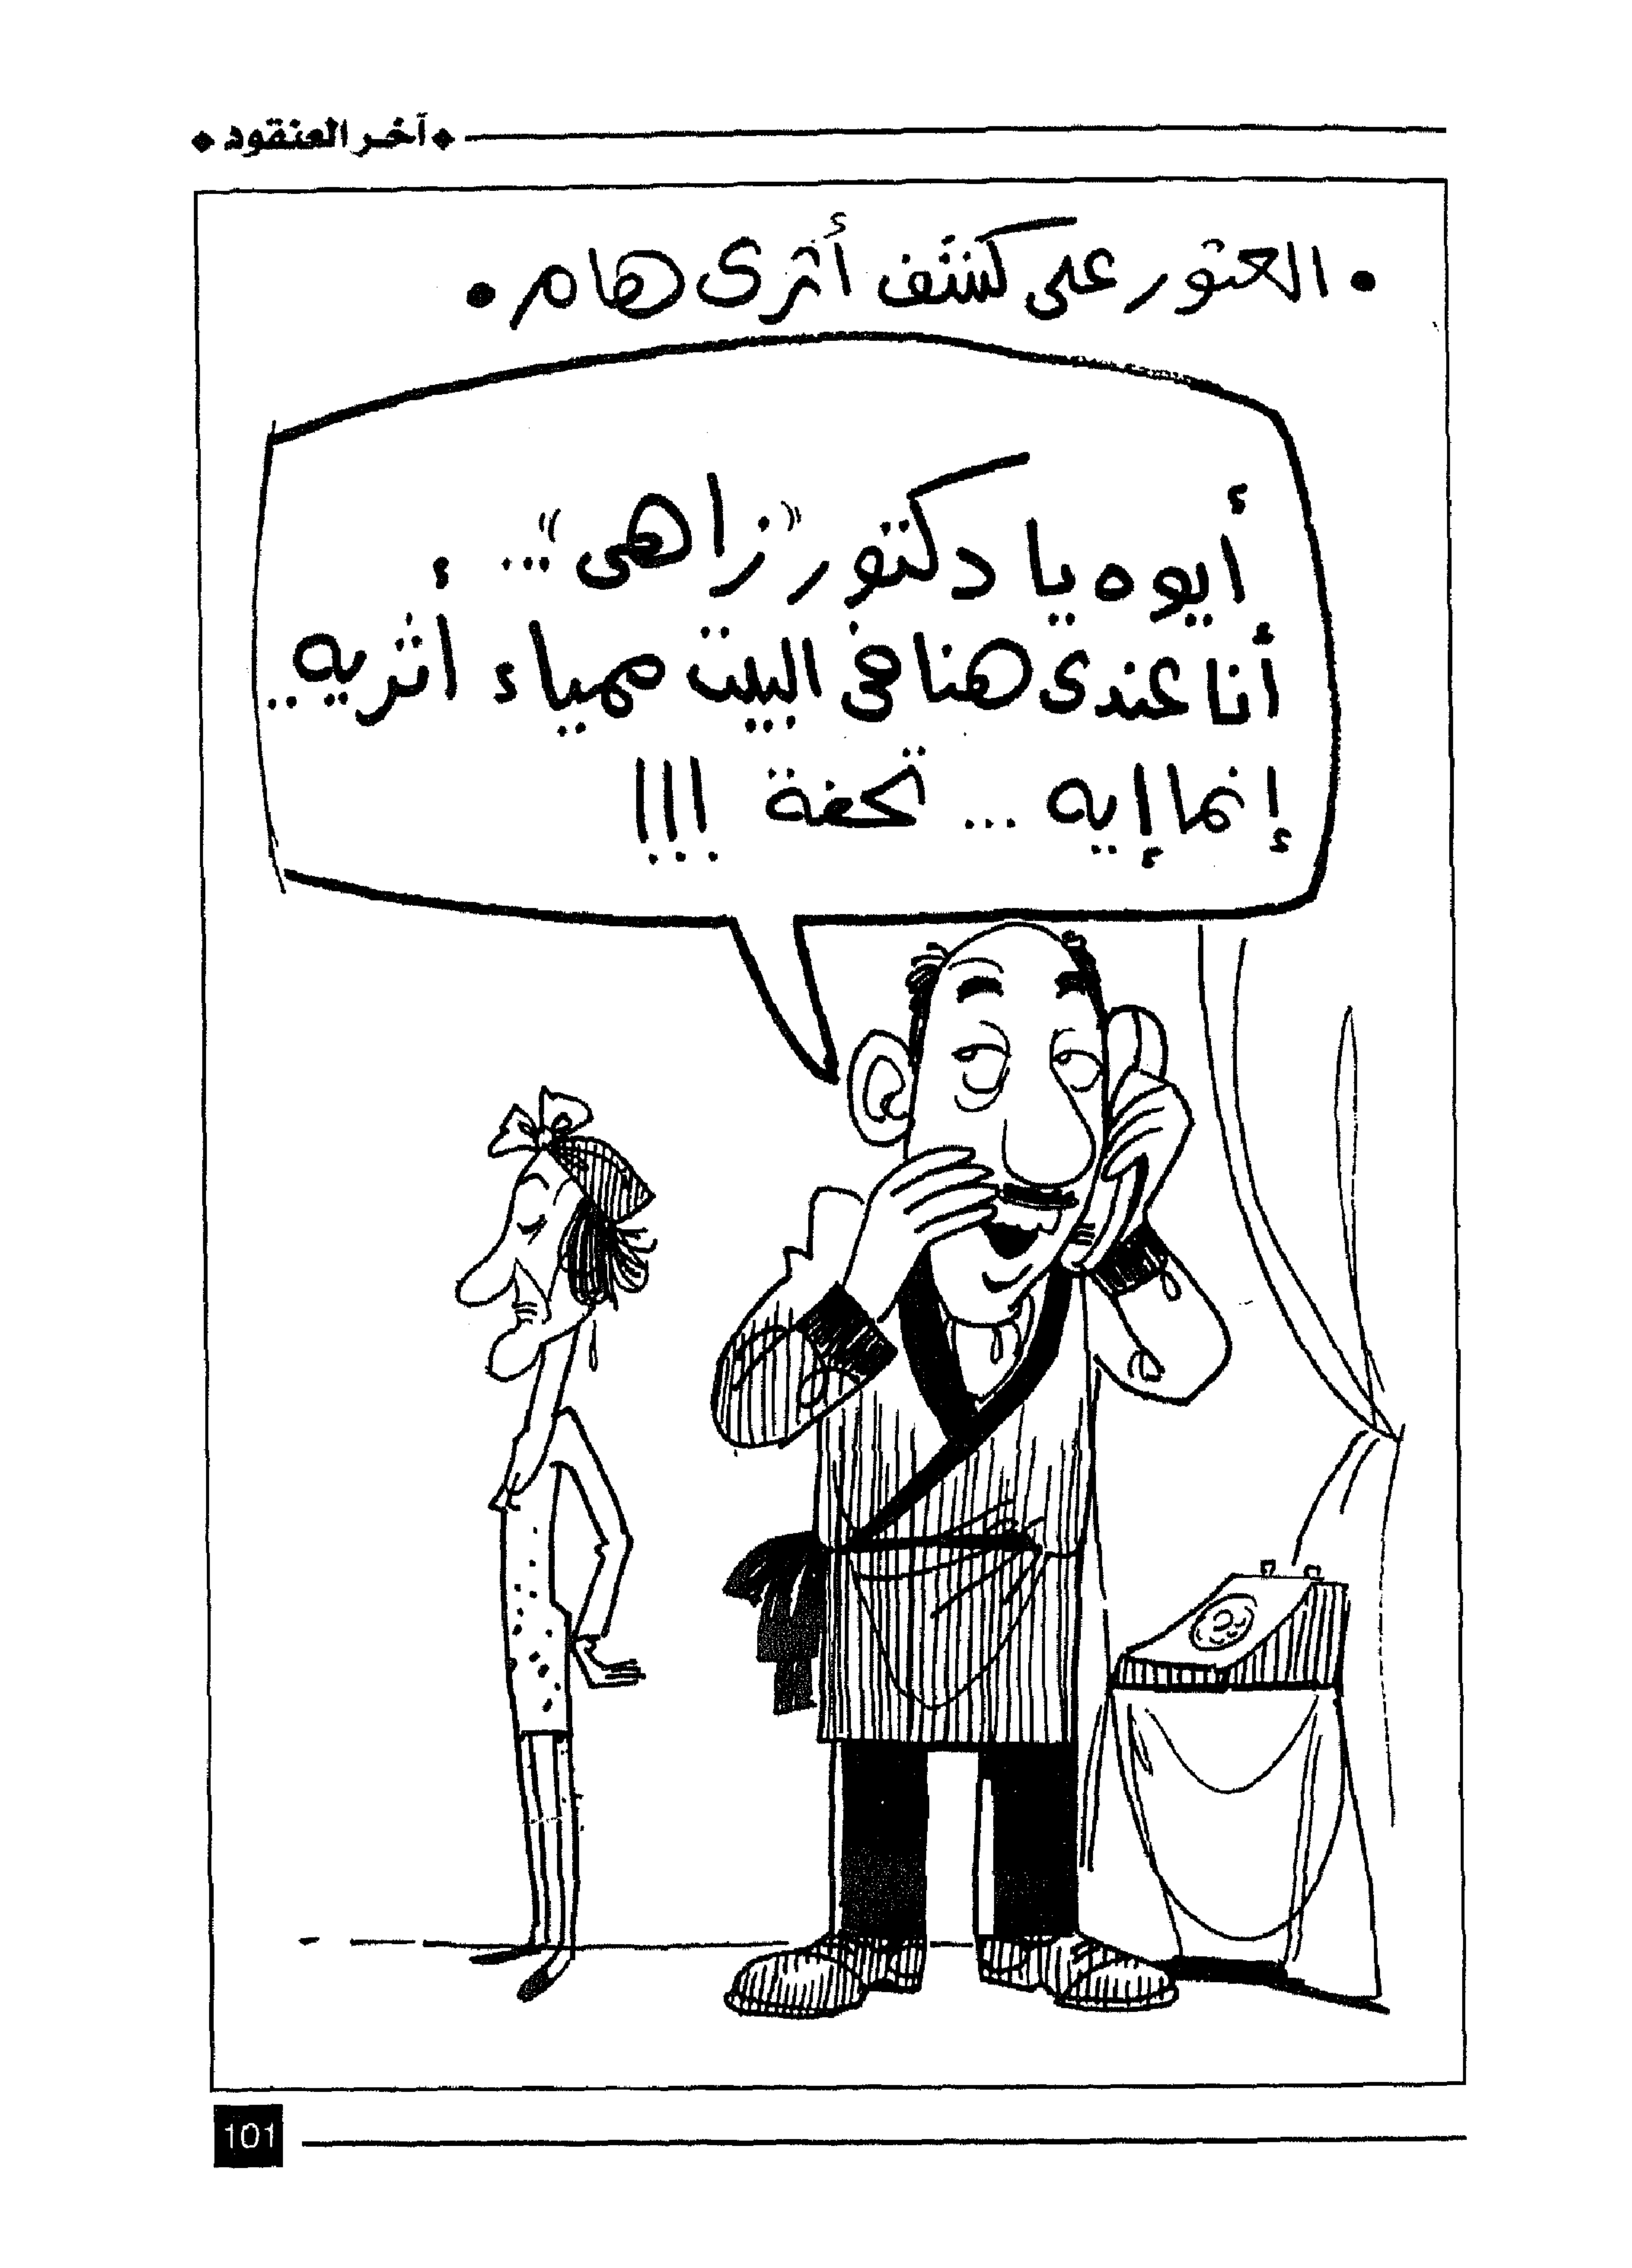 آخر العنقود
• العثور على كشف أثرى هام •
أيوه يا دكتور "زاهى"...
أنا عندى هنا فى البيت ممياء أثريه..
إنما إيه ... تحفة !!!
101